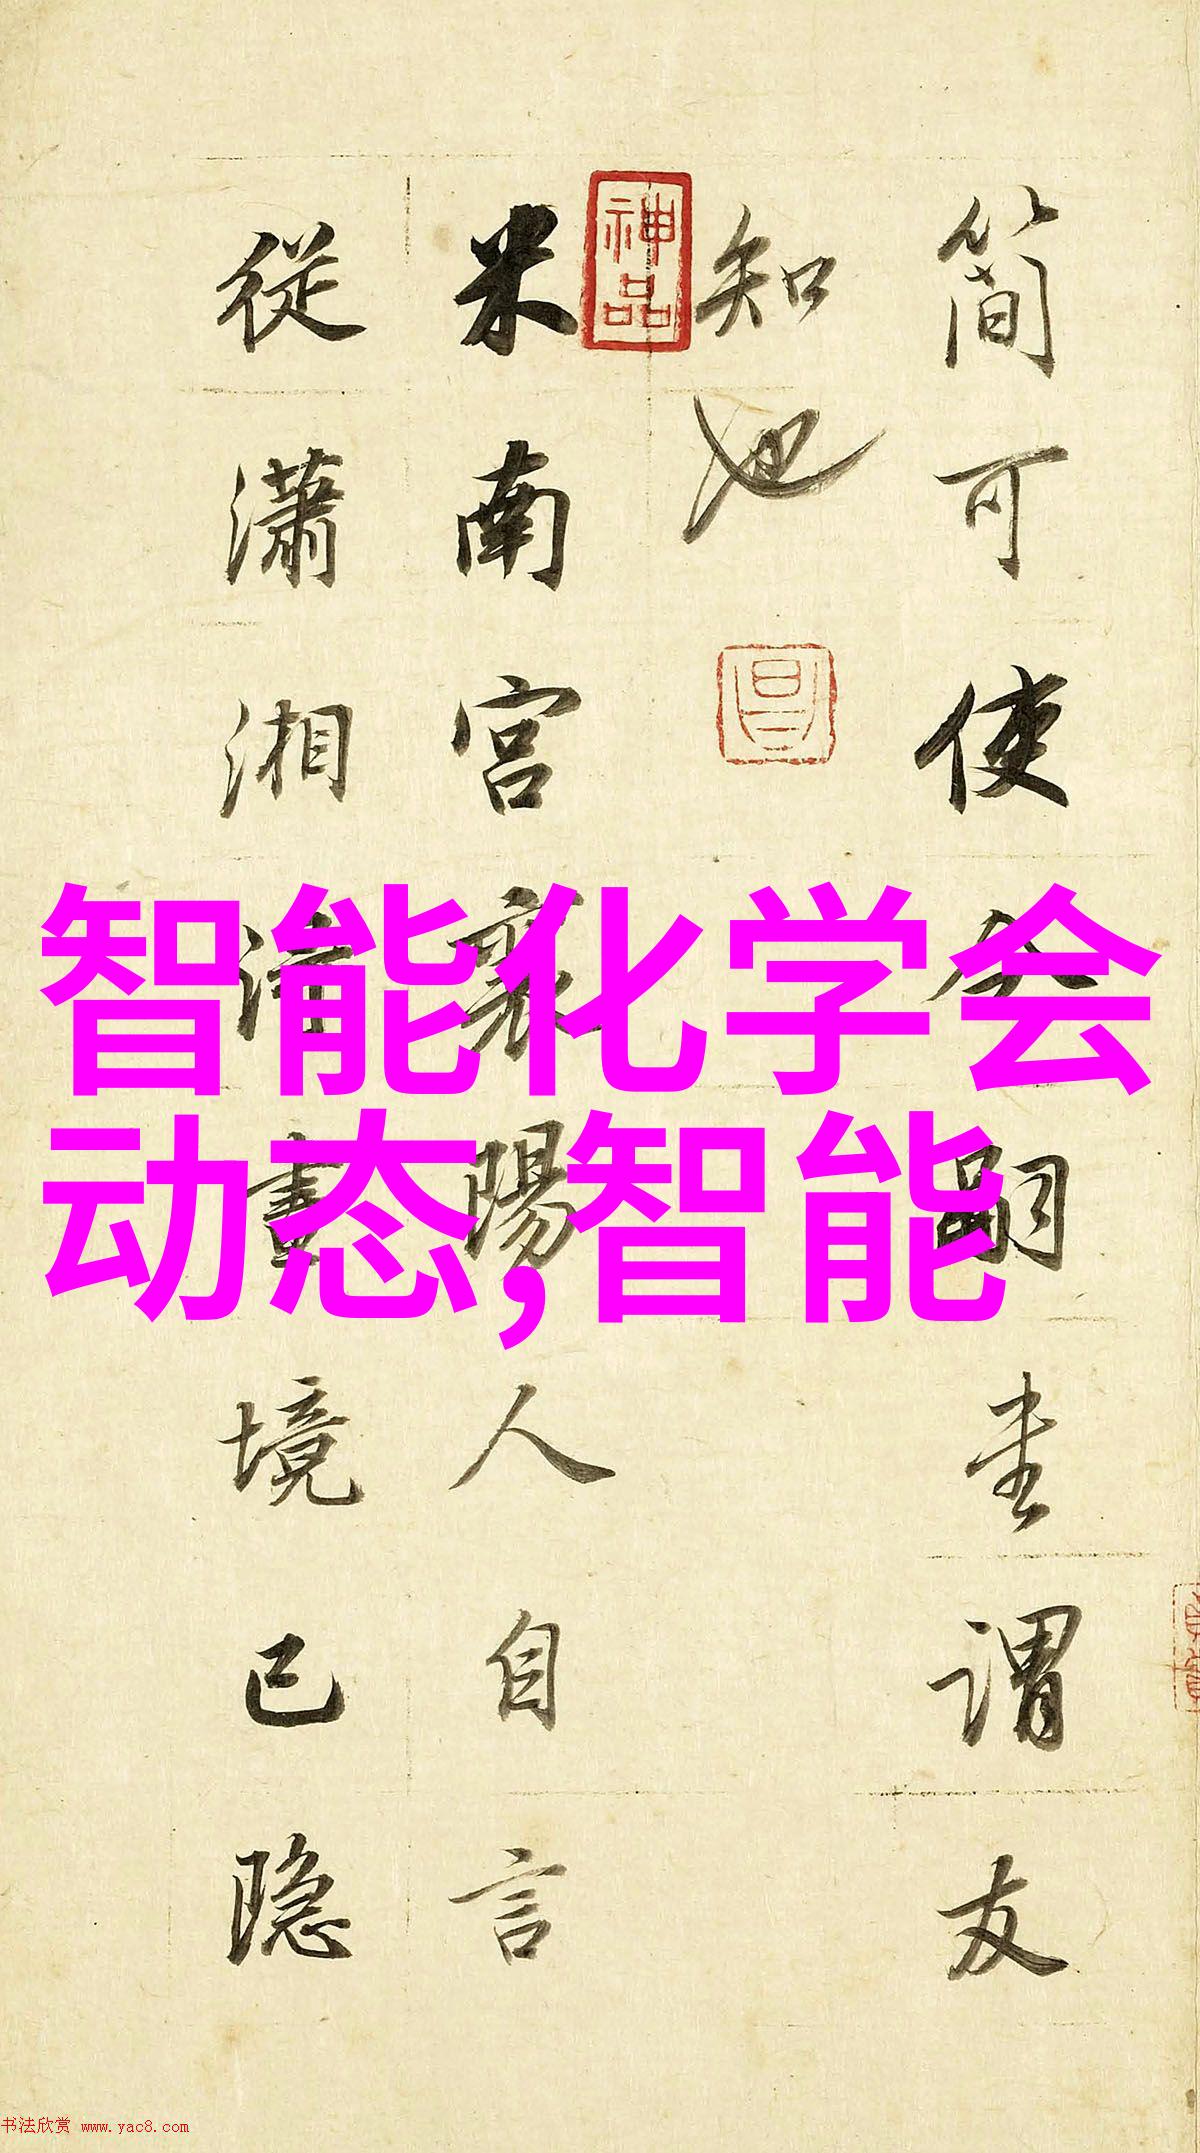 简可使令嗣圭谓友
知也
神品
米南宫襄陽人自言
從瀟湘得畫境已隐
智能化学会
动态,智能
书法欣赏 www.yac8.com